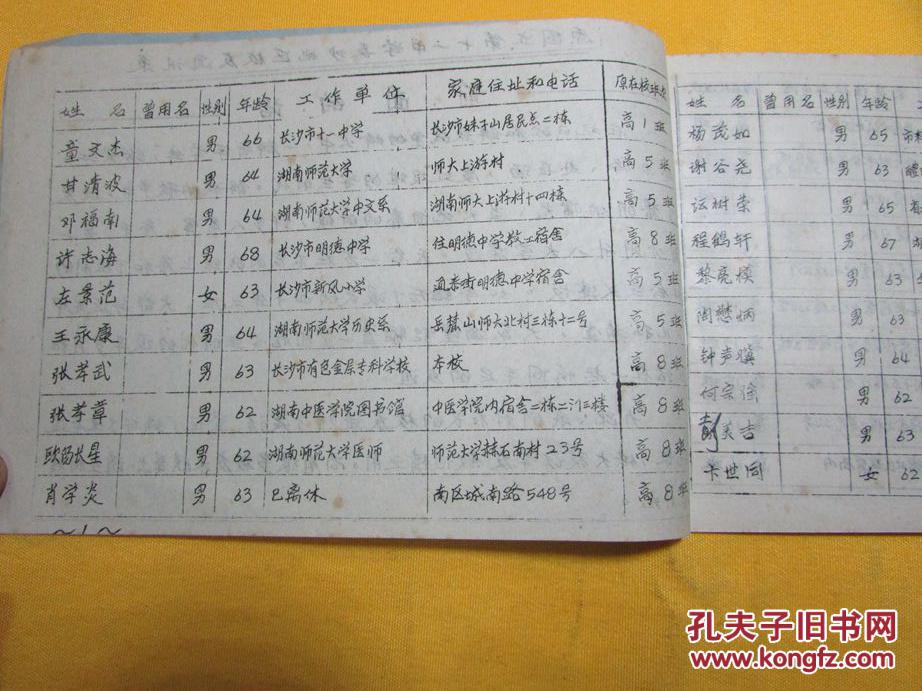 姓 名 曾用名 性别 年龄 工作单位 家庭住址和电话 原在校班次
童文杰 男 66 长沙市十一中学 长沙市妹子山居民点二栋 高1班
甘清波 男 64 湖南师范大学 师大上游村 高5班
邓福南 男 64 湖南师范大学中文系 湖南师大上游村十四栋 高5班
许志海 男 68 长沙市明德中学 住明德中学教工宿舍 高8班
左景范 女 63 长沙市新风小学 通泰街明德中学宿舍 高5班
王永康 男 64 湖南师范大学历史系 岳麓山师大北村三栋十二号 高5班
张孝武 男 63 长沙市有色金属专科学校 本校 高8班
张孝章 男 62 湖南中医学院图书馆 中医学院内宿舍二栋二门三楼 高8班
欧阳长星 男 62 湖南师范大学医师 师范大学赫石南村23号 高8班
肖学炎 男 63 已离休 南区城南路548号 高8班
~1~
姓 名 曾用名 性别 年龄
杨茂如 男 65
谢谷尧 男 63
沄树荣 男 65
程鹤轩 男 67
黎亮模 男 63
周懋炳 男 63
钟声骥 男 64
何宗淦 男 62
彭美吉 男 63
卞世同 女 62
孔夫子旧书网
www.kongfz.com